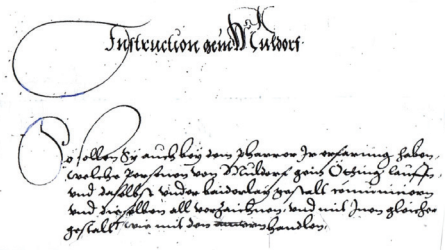 Instruction gein Muldorf
So sollen Sy auch bey dem Pfarrer Ir erfarung haben,
welche Personen von Muldorf gein Öting lauffen
vnd daselbst vnder baiderlay gestalt communicirn
vnd dieselben all verzaichnen, vnd mit Inen gleicher
gestallt wie mit den handlen.